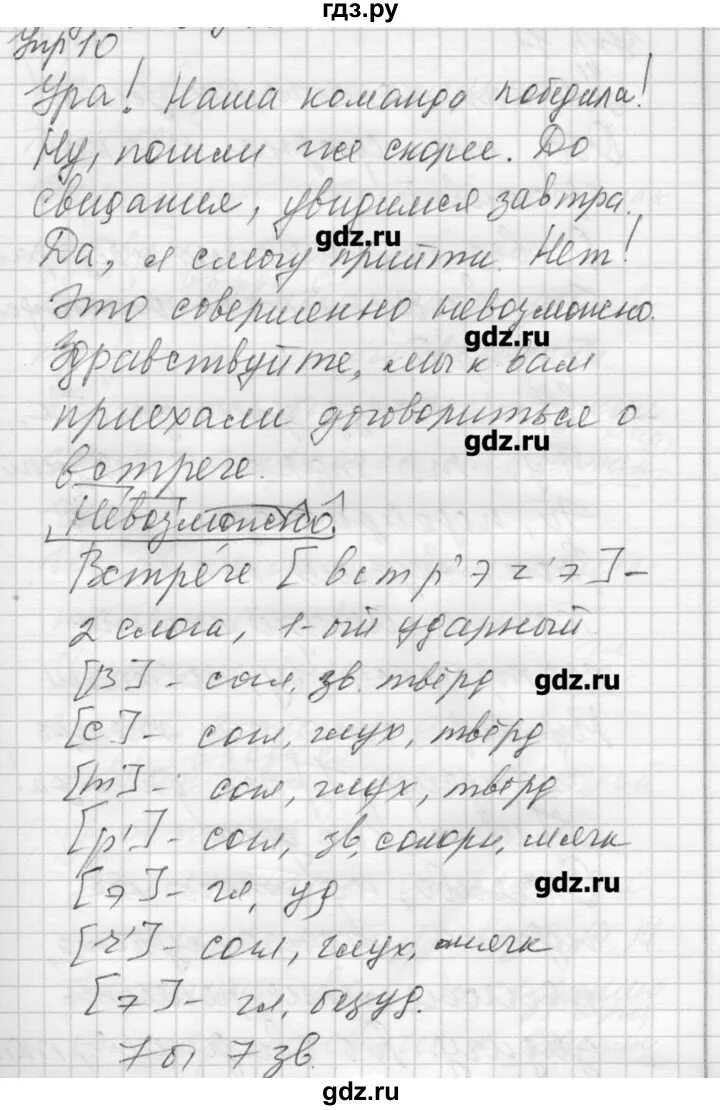 гдз.ру
Упр 10
Ура! Наша команда победила!
Ну, пошли же скорее. До
свидания, увидимся завтра.
gdz.ru
Да, я смогу прийти. Нет!
Это совершенно невозможно.
gdz.ru
Здравствуйте, мы к вам
приехали договориться о
gdz.ru
встрече.
Невозможно.
Встре́че [встр'эч'э]-
2 слога, 1-ый ударный
[в] - согл, зв. твёрд
gdz.ru
[с] - согл, глух, твёрд
[т] - согл, глух, твёрд
[р'] - согл, зв, сонорн, мягк
[э] - гл, уд
gdz.ru
[ч'] - согл, глух, мягк
[э] - гл, безуд.
7 б 7 зв.
gdz.ru